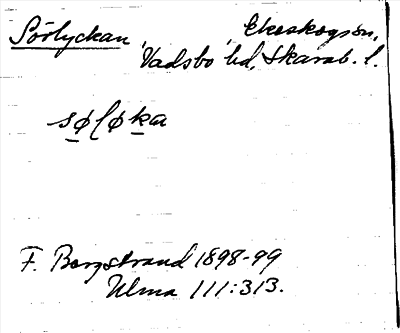 Sörlyckan, Ekeskogs sn,
Vadsbo hd, Skarab. l.
søløka
F. Bergstrand 1898-99
Ulma 111:313.